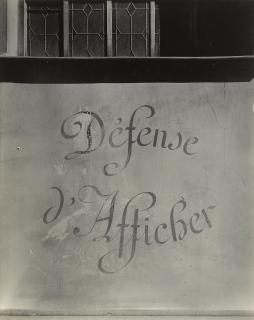 Défense
d'Afficher